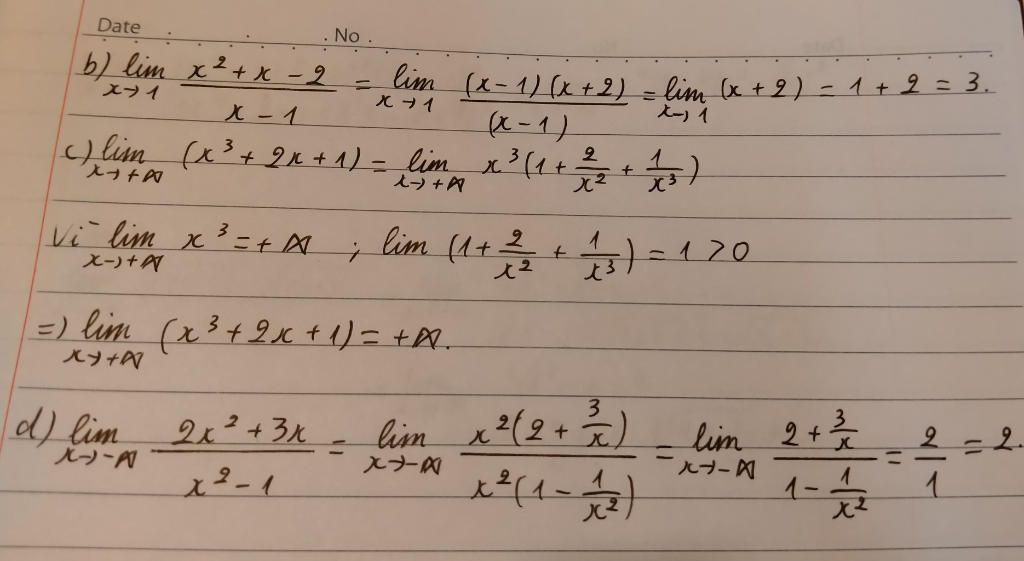 Date No.
b) lim_{x→1} \frac{x^2 + x - 2}{x - 1} = lim_{x→1} \frac{(x-1)(x+2)}{(x-1)} = lim_{x→1} (x + 2) = 1 + 2 = 3.
c) lim_{x→+∞} (x^3 + 2x + 1) = lim_{x→+∞} x^3 (1 + \frac{2}{x^2} + \frac{1}{x^3})
Vì lim_{x→+∞} x^3 = +∞ ; lim (1 + \frac{2}{x^2} + \frac{1}{x^3}) = 1 > 0
=) lim_{x→+∞} (x^3 + 2x + 1) = +∞.
d) lim_{x→-∞} \frac{2x^2 + 3x}{x^2 - 1} = lim_{x→-∞} \frac{x^2 (2 + \frac{3}{x})}{x^2 (1 - \frac{1}{x^2})} = lim_{x→-∞} \frac{2 + \frac{3}{x}}{1 - \frac{1}{x^2}} = \frac{2}{1} = 2.